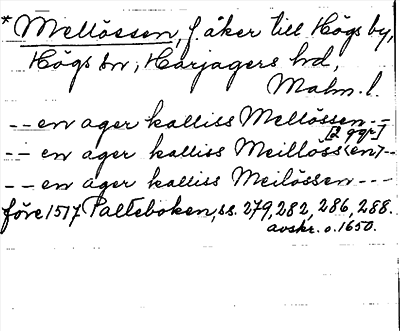 * Mellössen, f. åker till Högs by,
Högs sn, Harjagers hd,
Malm. l.
-- en ager kalliss Mellössen --
[2 ggr]
-- en ager kalliss Meillöss(en) --
-- en ager kalliss Meilössen ---
före 1517 Palteboken, ss. 279, 282, 286, 288.
avskr. o. 1650.